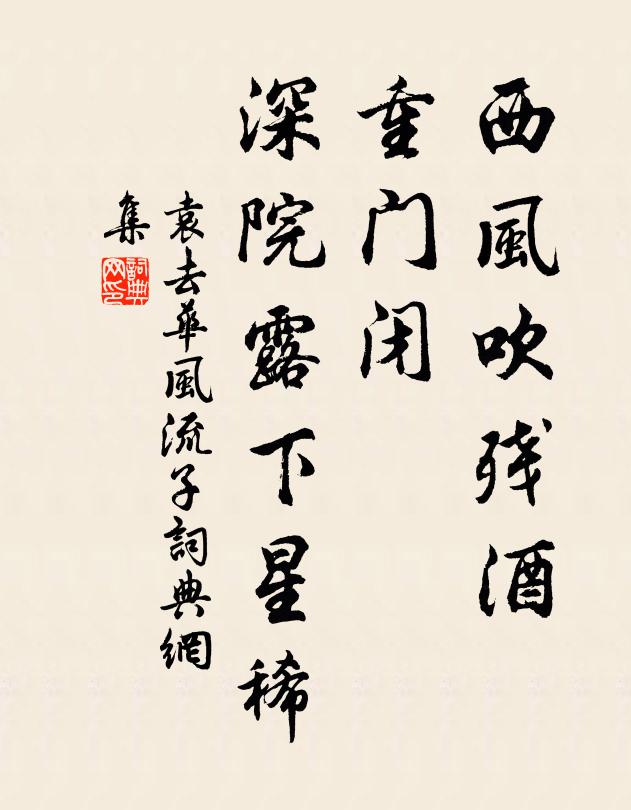 西風吹残酒
重门闭
深院露下星稀
袁去華風流子詞典網
集
詞典
网印